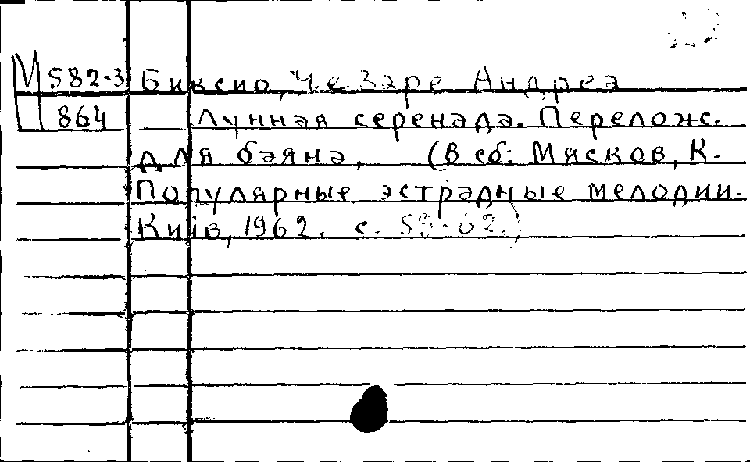 М 582-3 Биксио, Чезаре Андреа
Ц 864 Лунная серенада. Перелож.
для баяна. (В сб: Мясков, К.
Популярные эстрадные мелодии.
Київ, 1962. с. 59-62.)